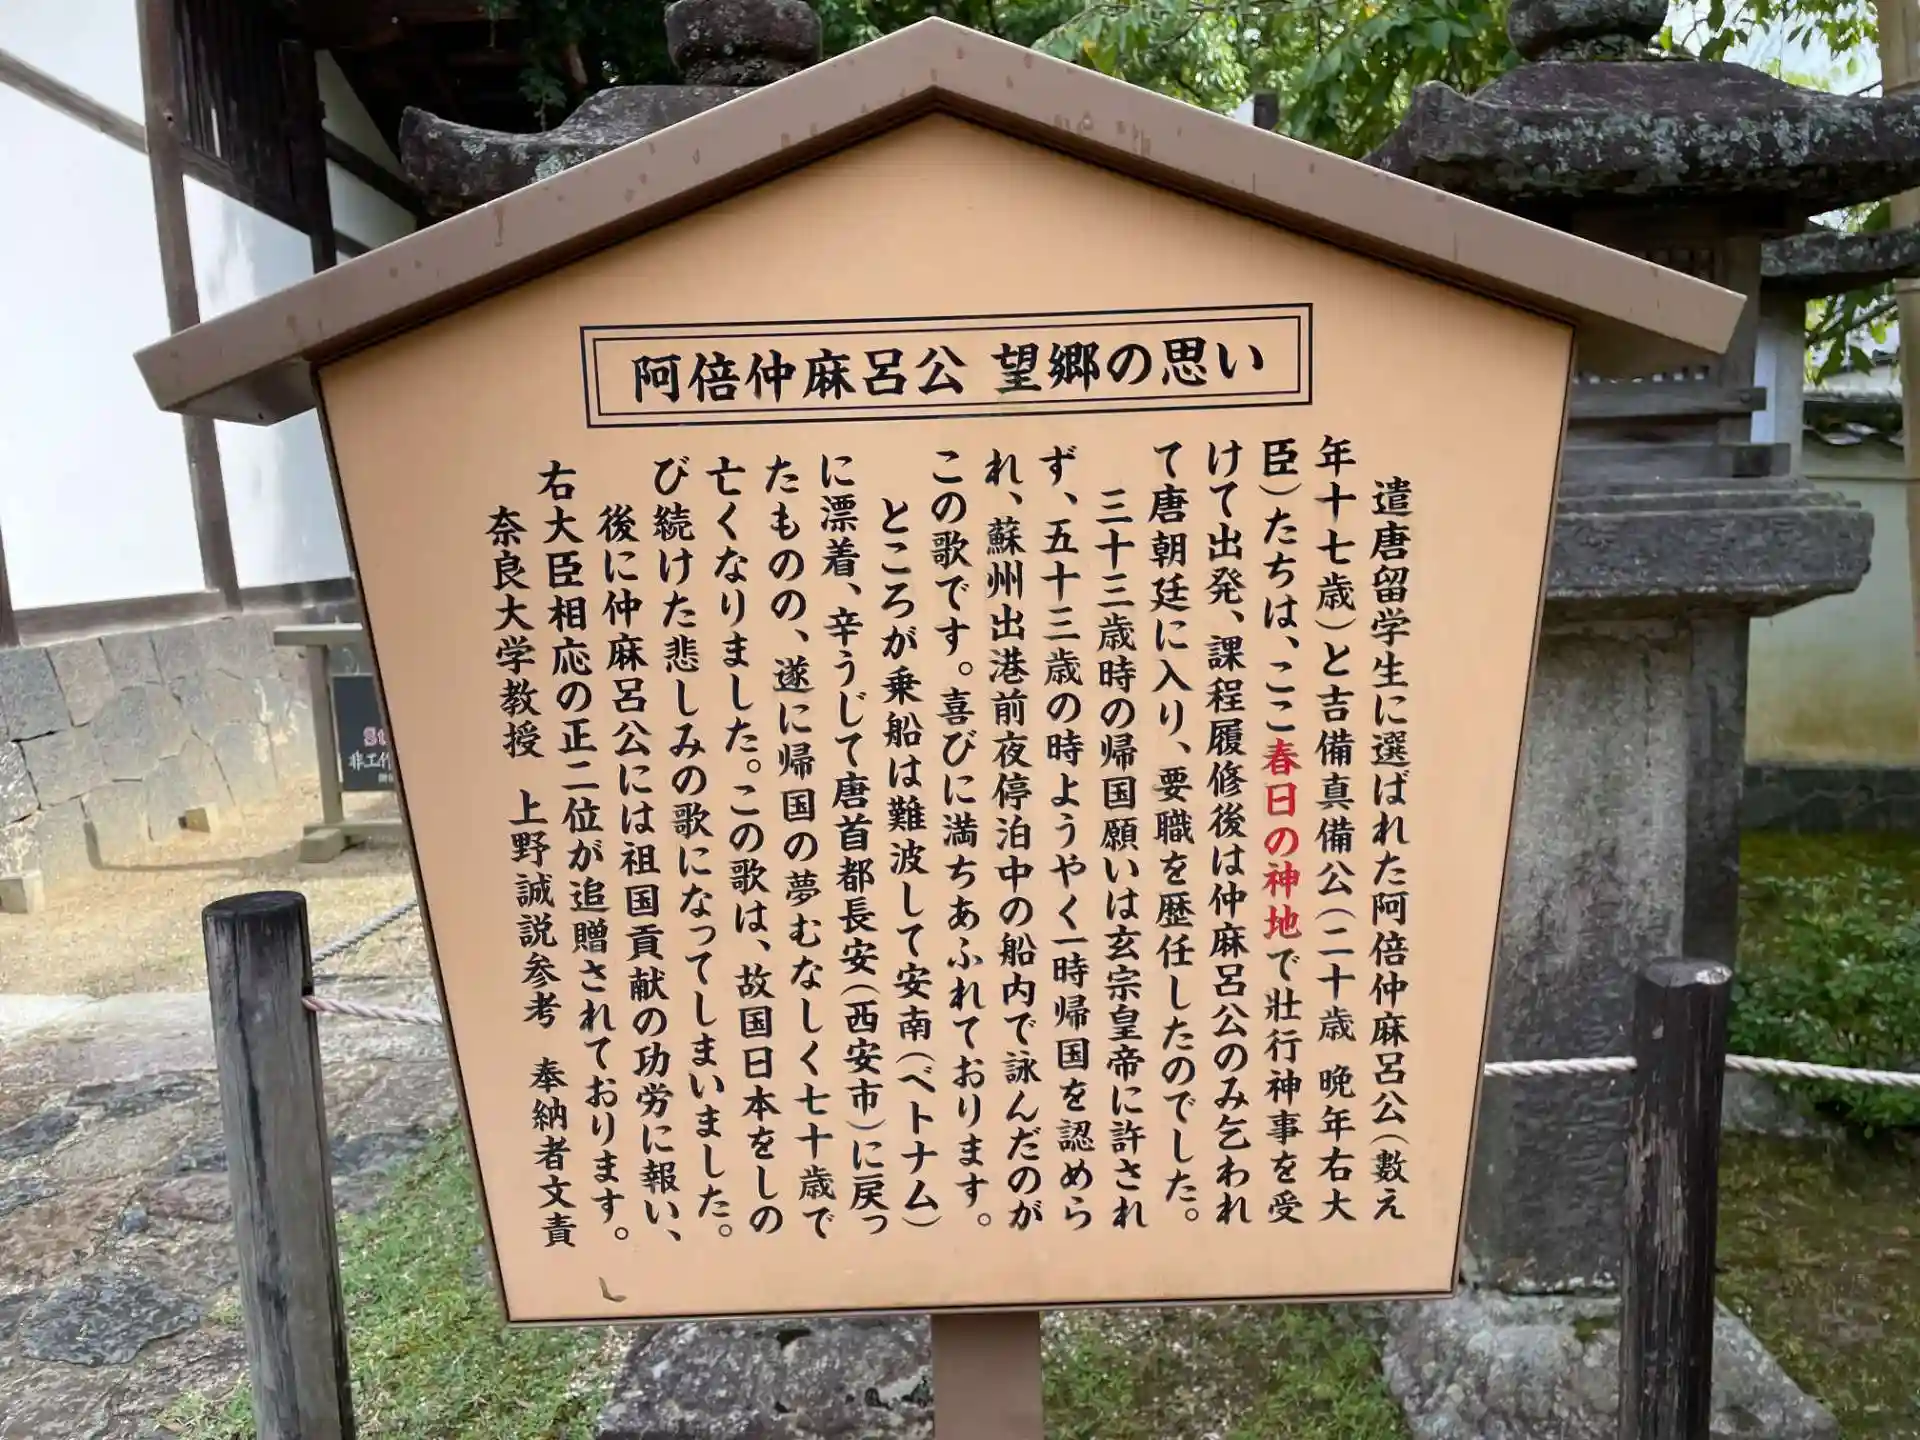 阿倍仲麻呂公 望郷の思い
遣唐留学生に選ばれた阿倍仲麻呂公(數え
年十七歳)と吉備真備公(二十歳 晩年右大
臣)たちは、ここ春日の神地で壮行神事を受
けて出発、課程履修後は仲麻呂公のみ乞われ
て唐朝廷に入り、要職を歴任したのでした。
三十三歳時の帰国願いは玄宗皇帝に許され
ず、五十三歳の時ようやく一時帰国を認めら
れ、蘇州出港前夜停泊中の船内で詠んだのが
この歌です。喜びに満ちあふれております。
ところが乗船は難波して安南(ベトナム)
に漂着、辛うじて唐首都長安(西安市)に戻っ
たものの、遂に帰国の夢むなしく七十歳で
亡くなりました。この歌は、故国日本をしの
び続けた悲しみの歌になってしまいました。
後に仲麻呂公には祖国貢献の功労に報い、
右大臣相応の正二位が追贈されております。
奈良大学教授 上野誠説参考 奉納者文責